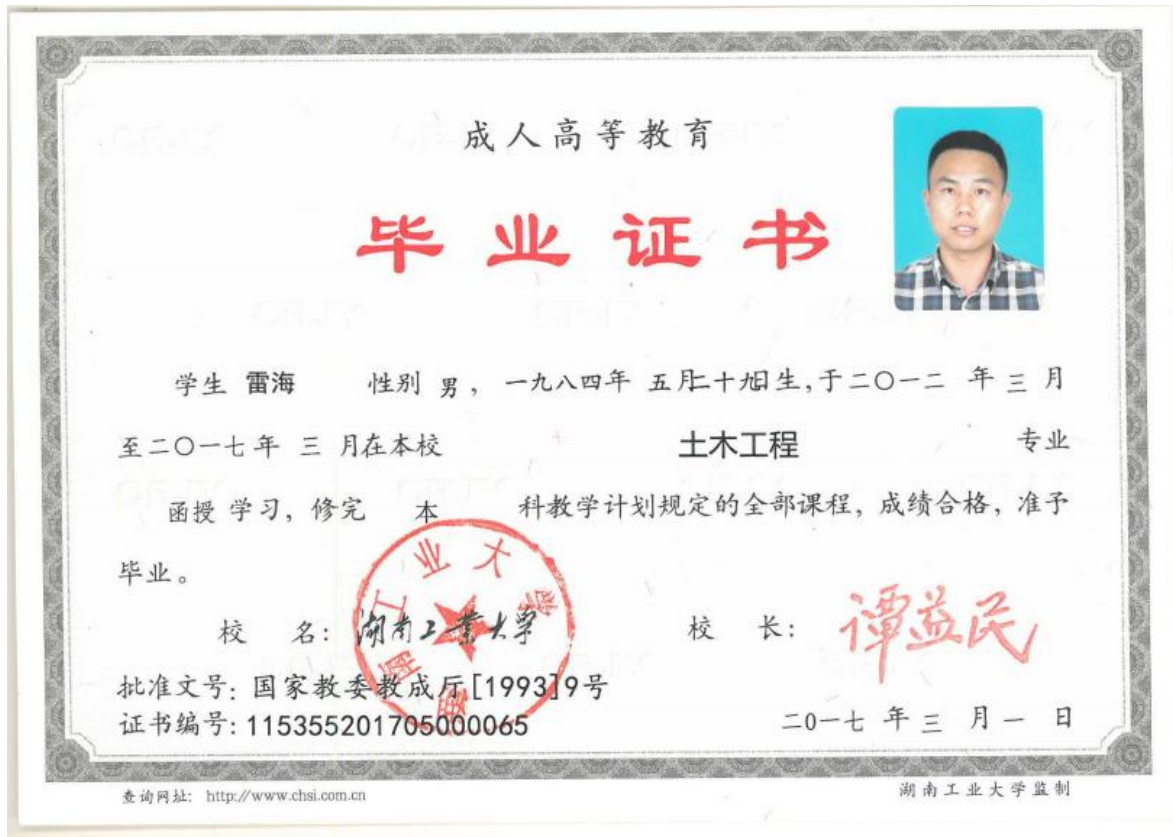 成人高等教育
毕业证书
学生 雷海 性别 男，一九八四年 五月二十九日生,于二〇一二 年 三 月
至二〇一七年 三 月在本校 土木工程 专业
函授 学习，修完 本 科教学计划规定的全部课程，成绩合格，准予
毕业。
校 名：湖南工业大学 校 长：谭益民
湖南工业大学
批准文号：国家教委教成厅[1993]9号
证书编号：115355201705000065 二0一七 年 三 月 一 日
查询网址： http://www.chsi.com.cn 湖南工业大学监制